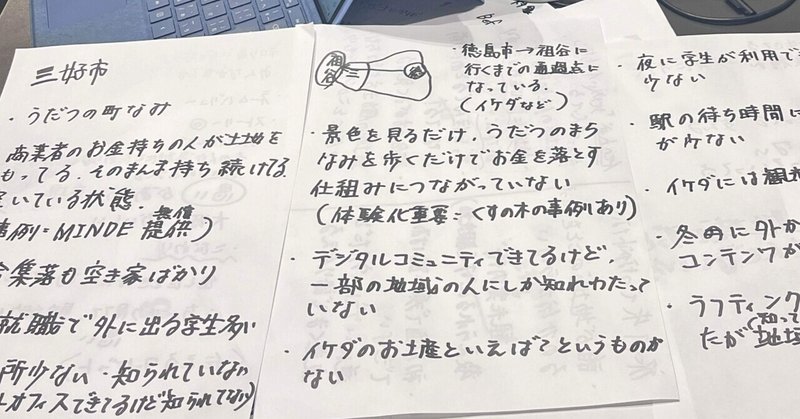 三好市
・うだつの町なみ
商業者のお金持ちの人が土地を
もってる。そのまんま持ち続けてる
いている状態
事例=MINDE 無償提供)
集落も空き家ばかり
就職で外に出る学生多い
所少ない・知られていない
オフィスできてるけど知られてない)
祖谷
三
徳
・徳島市→祖谷に
行くまでの通過点に
なっている。
(イケダなど)
・景色を見るだけ、うだつのまち
なみを歩くだけでお金を落とす
仕組みにつながっていない
(体験化重要=くすの木の事例あり)
・デジタルコミュニティできてるけど、
一部の地域の人にしか知れわたって
いない
・イケダのお土産といえば?というものが
ない
・夜に学生が利用で
少ない
・駅の待ち時間に
が少ない
・イケダには観光
・冬に外か
コンテンツが
・ラフティング
(知って
たが地域